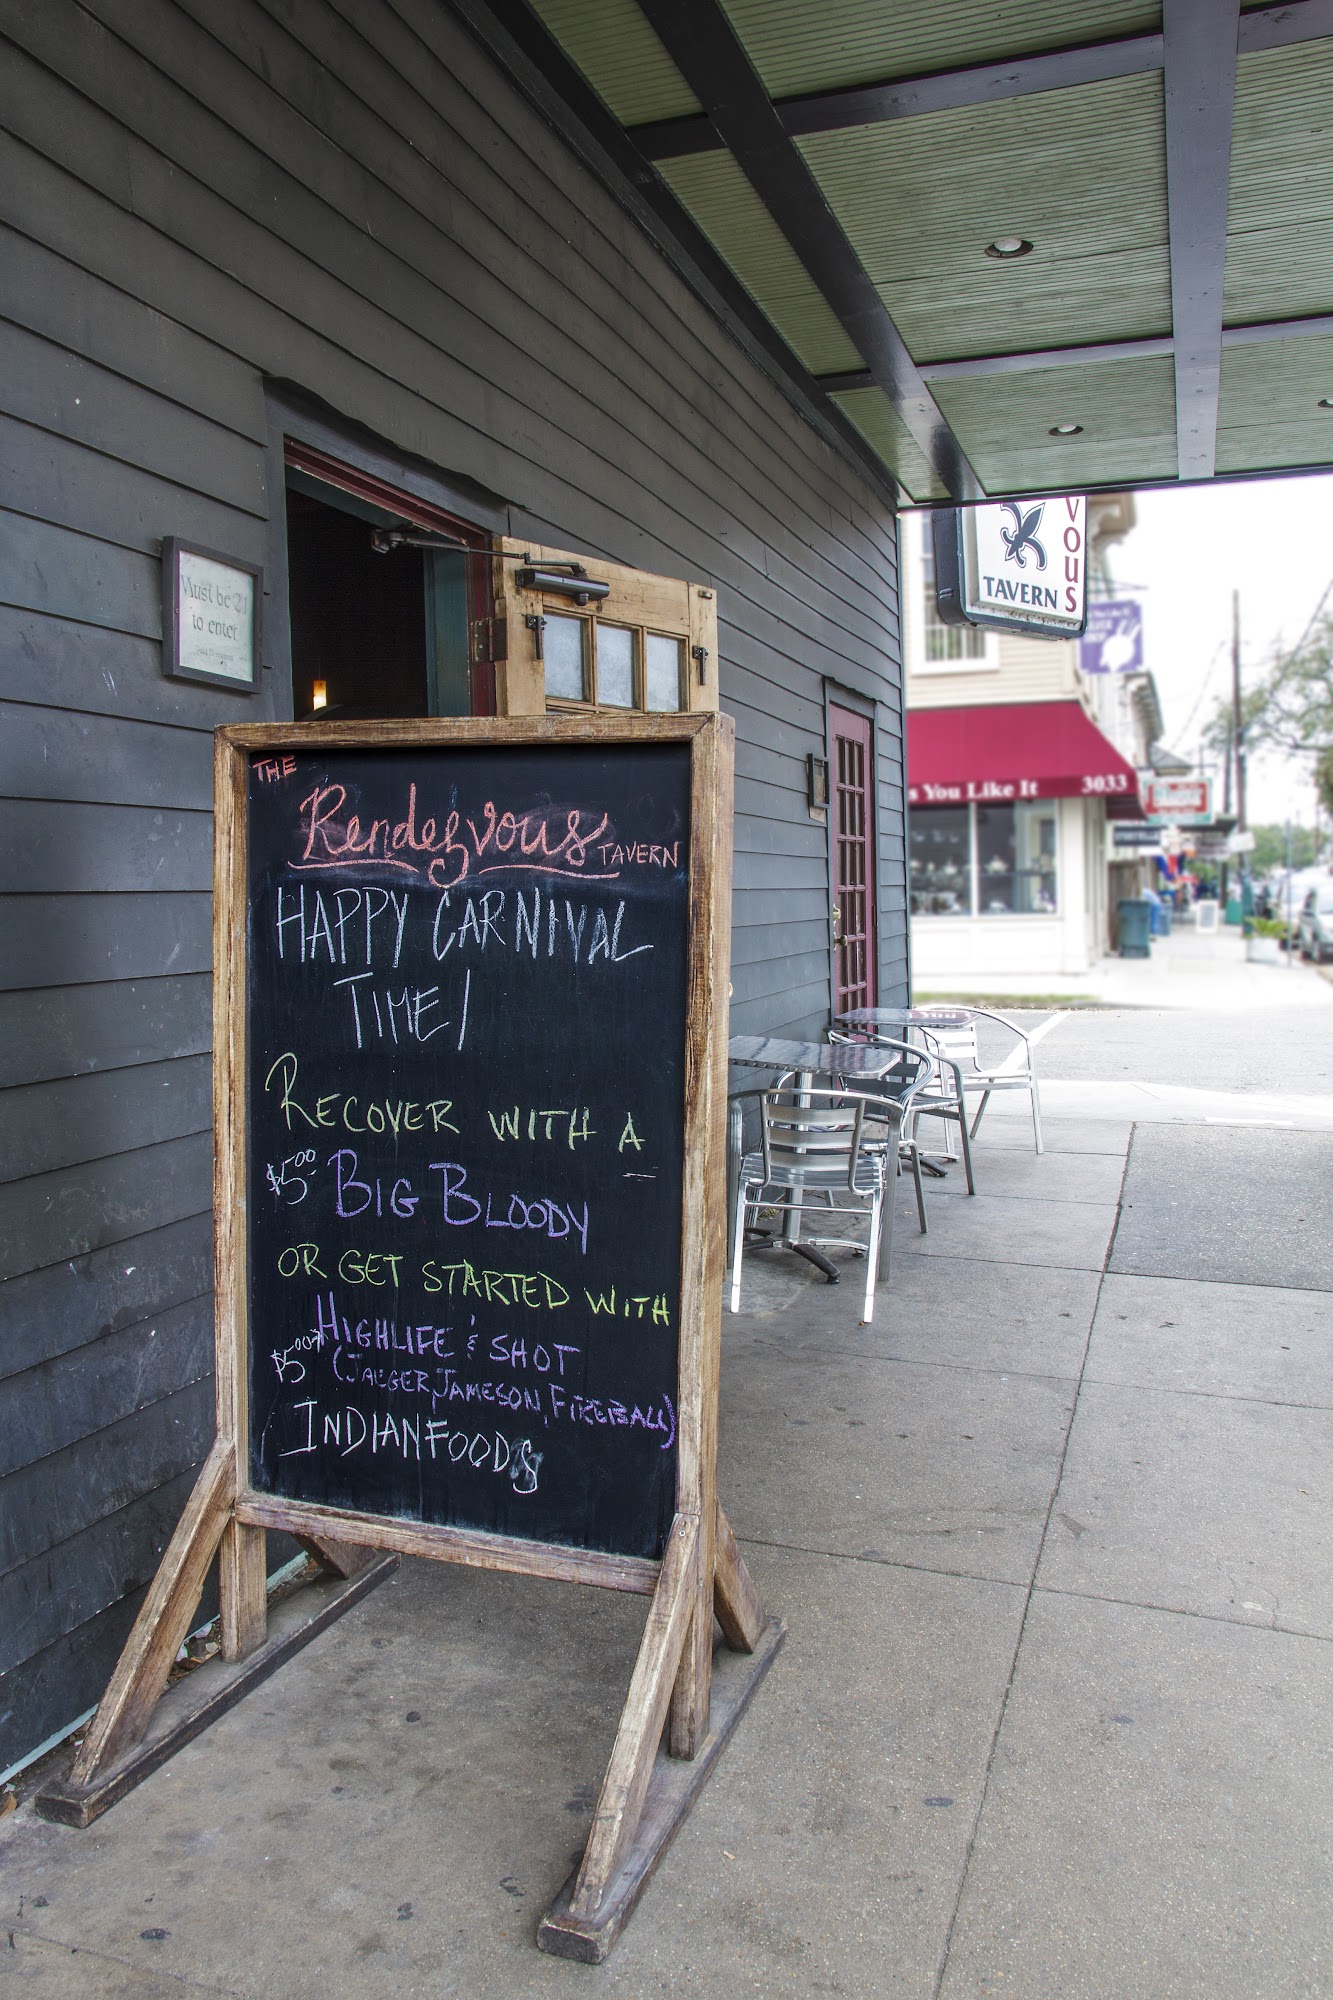 Must be 21
to enter
THE
Rendezvous TAVERN
HAPPY CARNIVAL
TIME!
RECOVER WITH A
$5.00 BIG BLOODY
OR GET STARTED WITH
$5.00 HIGHLIFE & SHOT
(JAEGER, JAMESON, FIREBALL)
INDIAN FOODS
VOUS
TAVERN
s You Like It 3033